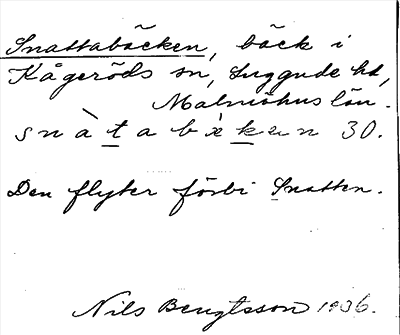 Snattabäcken, bäck i
Kågeröds sn, Luggude hd,
Malmöhus län.
snàtabèken 30.
Den flyter förbi Snatten.
Nils Bengtsson 1936.